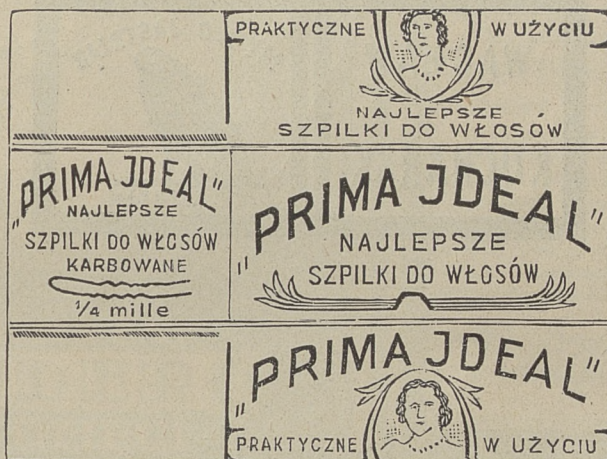 PRAKTYCZNE W UŻYCIU
NAJLEPSZE
SZPILKI DO WŁOSÓW
„PRIMA JDEAL"
NAJLEPSZE
SZPILKI DO WŁOSÓW
KARBOWANE
1/4 mille
„PRIMA JDEAL"
NAJLEPSZE
„SZPILKI DO WŁOSÓW„
„PRIMA JDEAL"
PRAKTYCZNE W UŻYCIU